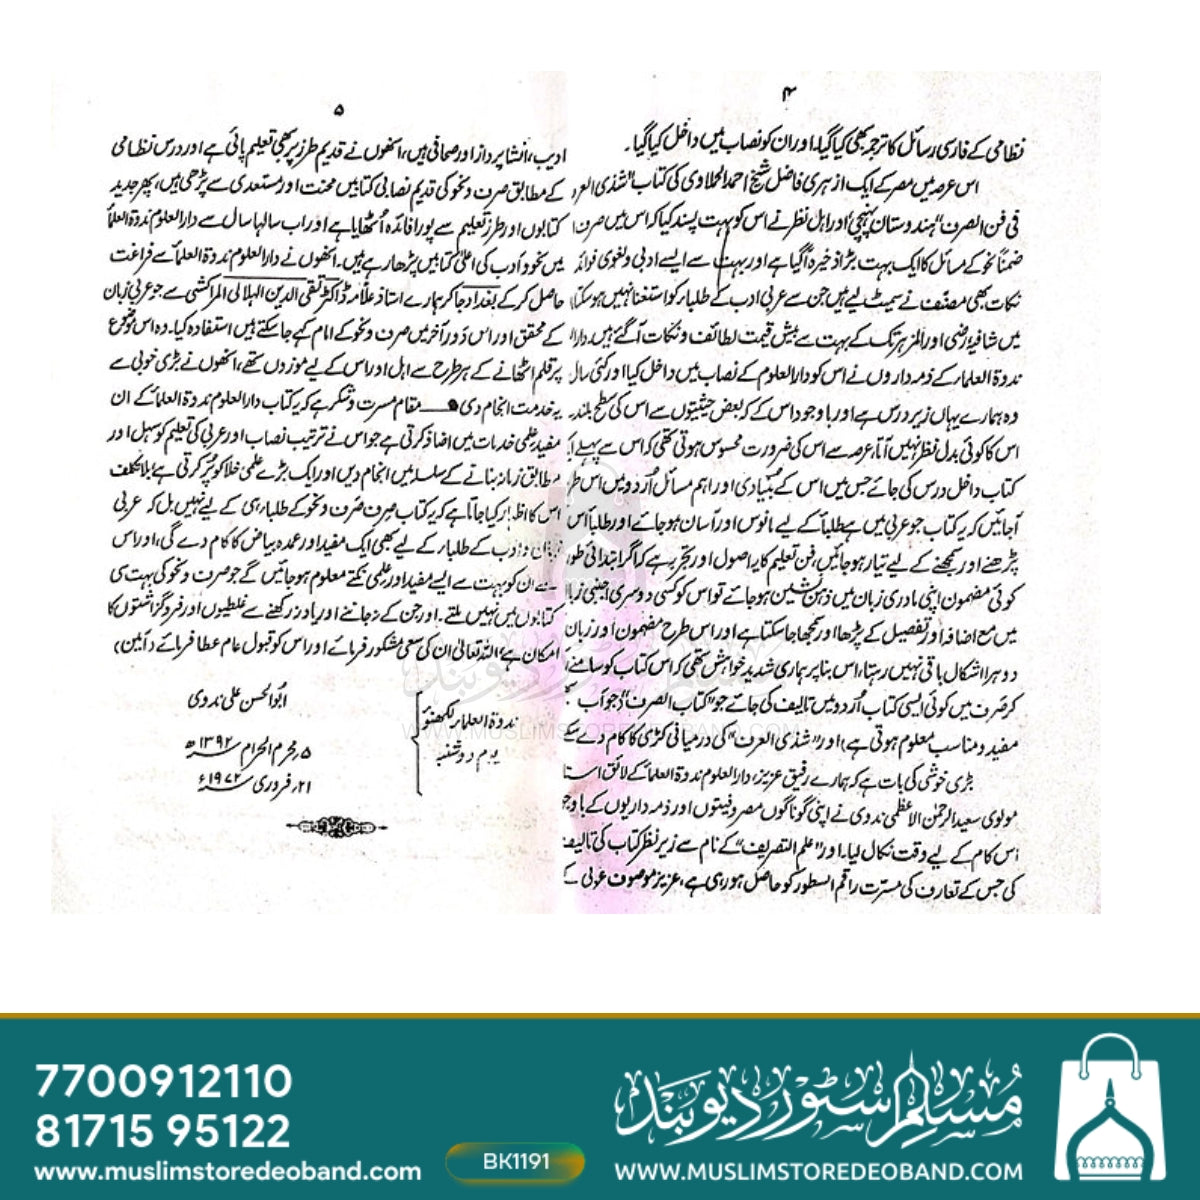 ۴
نظامی کے فارسی رسائل کا ترجمہ بھی کیا گیا۔ اور ان کو نصاب میں داخل کیا گیا۔
اس عرصہ میں مصر کے ایک ازہری فاضل شیخ احمد الحملاوی کی کتاب "شذی العر
فی فن الصرف" ہندوستان پہنچی اور اہل نظر نے اس کو بہت پسند کیا کہ اس میں صرف
ضمناً نحو کے مسائل کا ایک بہت بڑا ذخیرہ آگیا ہے اور بہت سے ایسے ادبی و لغوی فوائد
نکات بھی مصنف نے سمیٹ لیے ہیں جن سے عربی ادب کے طلباء کو استغنا نہیں ہو سکتا
میں شافیہ رضی اور المزہر تک کے بہت سے بیش قیمت لطائف و نکات آگئے ہیں دارال
ندوۃ العلماء کے ذمہ داروں نے اس کو دارالعلوم کے نصاب میں داخل کیا اور کئی سال
وہ ہمارے یہاں زیر درس ہے اور باوجود اس کے کہ بعض حیثیتوں سے اس کی سطح بلند
اس کا کوئی بدل نظر نہیں آتا، عرصہ سے اس کی ضرورت محسوس ہوتی تھی کہ اس سے پہلے
کتاب داخل درس کی جائے جس میں اس کے بنیادی اور اہم مسائل اُردو میں اس طر
آجائیں کہ یہ کتاب جو عربی میں ہے طلباء کے لیے مانوس اور آسان ہو جائے اور طلباء اس
پڑھنے اور سمجھنے کے لیے تیار ہو جائیں، فن تعلیم کا یہ اصول اور تجربہ ہے کہ اگر ابتدائی طو
کوئی مضمون اپنی مادری زبان میں ذہن نشین ہو جائے تو اس کو کسی دوسری اجنبی زبا
میں مع اضافہ اور تفصیل کے پڑھا اور سمجھا جا سکتا ہے اور اس طرح مضمون اور زبان
دوہرا اشکال باقی نہیں رہتا، اس بنا پر ہماری شدید خواہش تھی کہ اس کتاب کو سامنے
کر صرف میں کوئی ایسی کتاب اُردو میں تالیف کی جائے جو "کتاب الصرف" (جو اب
مفید و مناسب معلوم ہوتی ہے) اور "شذی العرف" کی درمیانی کڑی کا کام دے سکے
بڑی خوشی کی بات ہے کہ ہمارے رفیق عزیز، دارالعلوم ندوۃ العلماء کے لائق استا
مولوی سعید الرحمٰن الاعظمی ندوی نے اپنی گوناگوں مصروفیتوں اور ذمہ داریوں کے باوجو
اس کام کے لیے وقت نکال لیا۔ اور "علم التصریف" کے نام سے زیر نظر کتاب کی تالیف
کی جس کے تعارف کی مسرت راقم السطور کو حاصل ہو رہی ہے، عزیز موصوف عربی کے
۵
ادیب، انشا پرداز اور صحافی ہیں، انھوں نے قدیم طرز پر بھی تعلیم پائی ہے اور درس نظامی
کے مطابق صرف و نحو کی قدیم نصابی کتابیں محنت اور مستعدی سے پڑھی ہیں، پھر جدید
کتابوں اور طرز تعلیم سے پورا فائدہ اُٹھایا ہے اور اب سالہا سال سے دارالعلوم ندوۃ العلماء
میں نحو و ادب کی اعلیٰ کتابیں پڑھا رہے ہیں۔ انھوں نے دارالعلوم ندوۃ العلماء سے فراغت
حاصل کر کے بغداد جا کر ہمارے استاذ علامہ ڈاکٹر تقی الدین الہلالی المراکشی سے جو عربی زبان
کے محقق اور اس دَور آخر میں صرف و نحو کے امام کہے جا سکتے ہیں استفادہ کیا۔ وہ اس موضوع
پر قلم اٹھانے کے ہر طرح سے اہل اور اس کے لیے موزوں تھے، انھوں نے بڑی خوبی سے
یہ خدمت انجام دی۔ مقام مسرت و شکر ہے کہ یہ کتاب دارالعلوم ندوۃ العلماء کے ان
مفید علمی خدمات میں اضافہ کرتی ہے جو اس نے ترتیب نصاب اور عربی کی تعلیم کو سہل اور
مطابق زمانہ بنانے کے سلسلہ میں انجام دیں اور ایک بڑے علمی خلا کو پُر کرتی ہے بلا تکلف
اس کا اظہار کیا جاتا ہے کہ یہ کتاب صرف صَرف و نحو کے طلباء ہی کے لیے نہیں بل کہ عربی
زبان و ادب کے طلباء کے لیے بھی ایک مفید اور عمدہ بیاض کا کام دے گی، اور اس
سے ان کو بہت سے ایسے مفید اور علمی نکتے معلوم ہو جائیں گے جو صرف و نحو کی بہت سی
کتابوں میں نہیں ملتے۔ اور جن کے نہ جاننے اور یاد نہ رکھنے سے غلطیوں اور فروگزاشتوں کا
امکان ہے، اللہ تعالیٰ ان کی سعی مشکور فرمائے اور اس کو قبول عام عطا فرمائے (آمین)
ابوالحسن علی ندوی
ندوۃ العلماء لکھنؤ
یوم دوشنبہ
۵ محرم الحرام ۱۳۹۲ھ
۲۱ فروری ۱۹۷۲ء
WWW.MUSLIMSTOREDEOBAND.COM
7700912110
81715 95122
www.muslimstoredeoband.com
BK1191
مسلم سٹور دیوبند
WWW.MUSLIMSTOREDEOBAND.COM